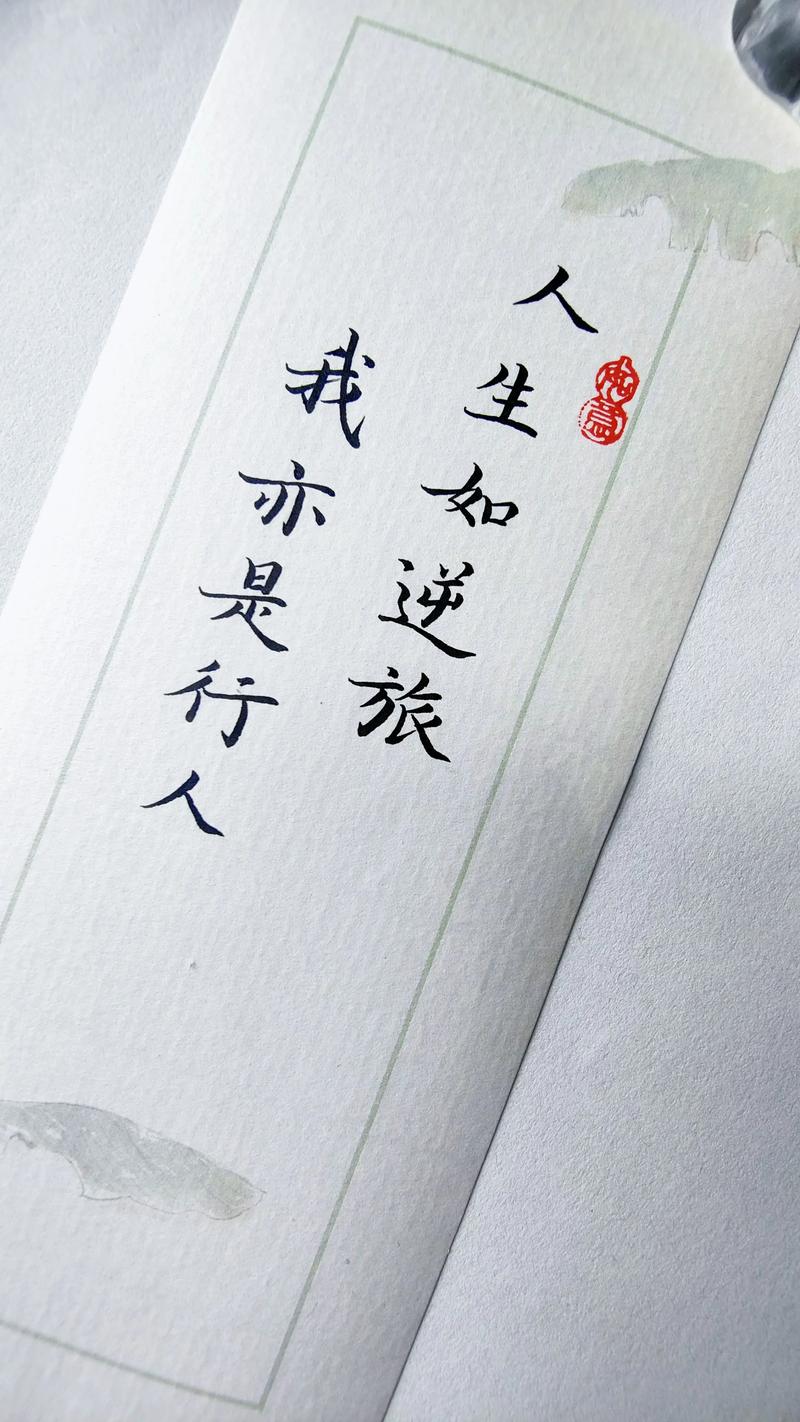 人生如逆旅
我亦是行人
如意